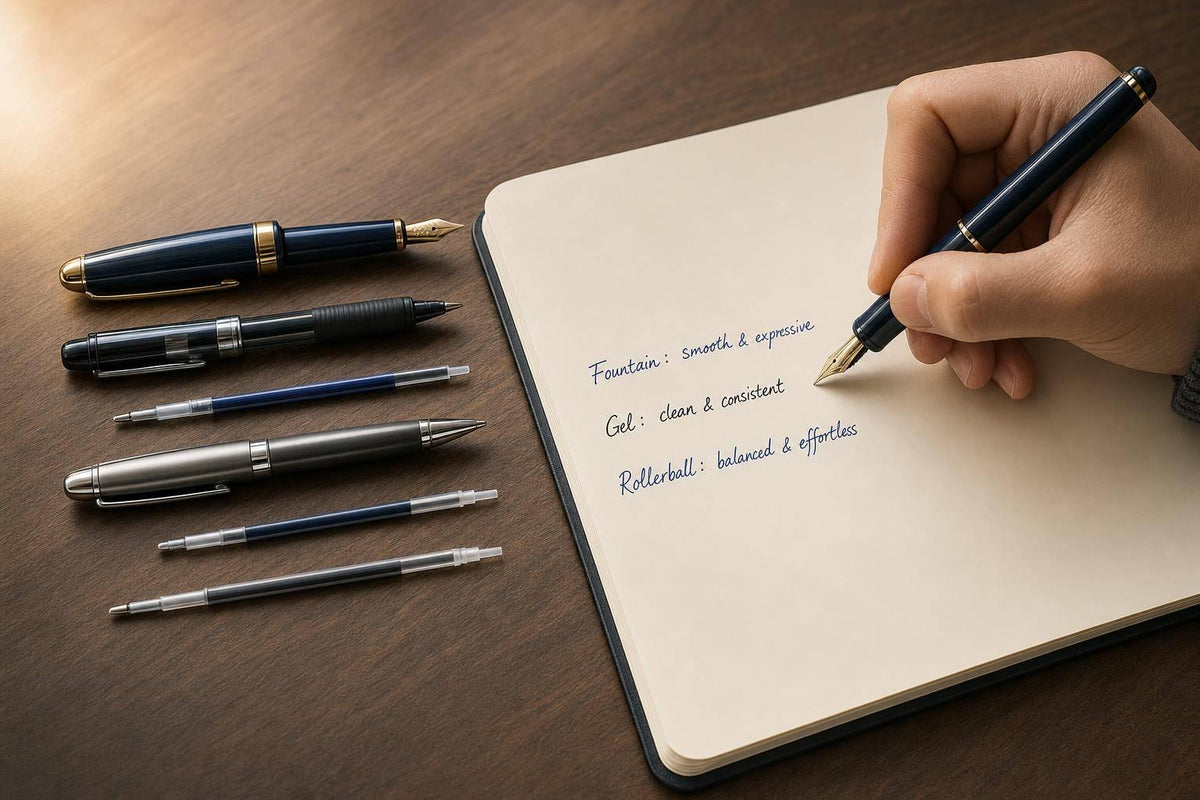 Fountain: smooth & expressive
Gel: clean & consistent
Rollerball: balanced & effortless